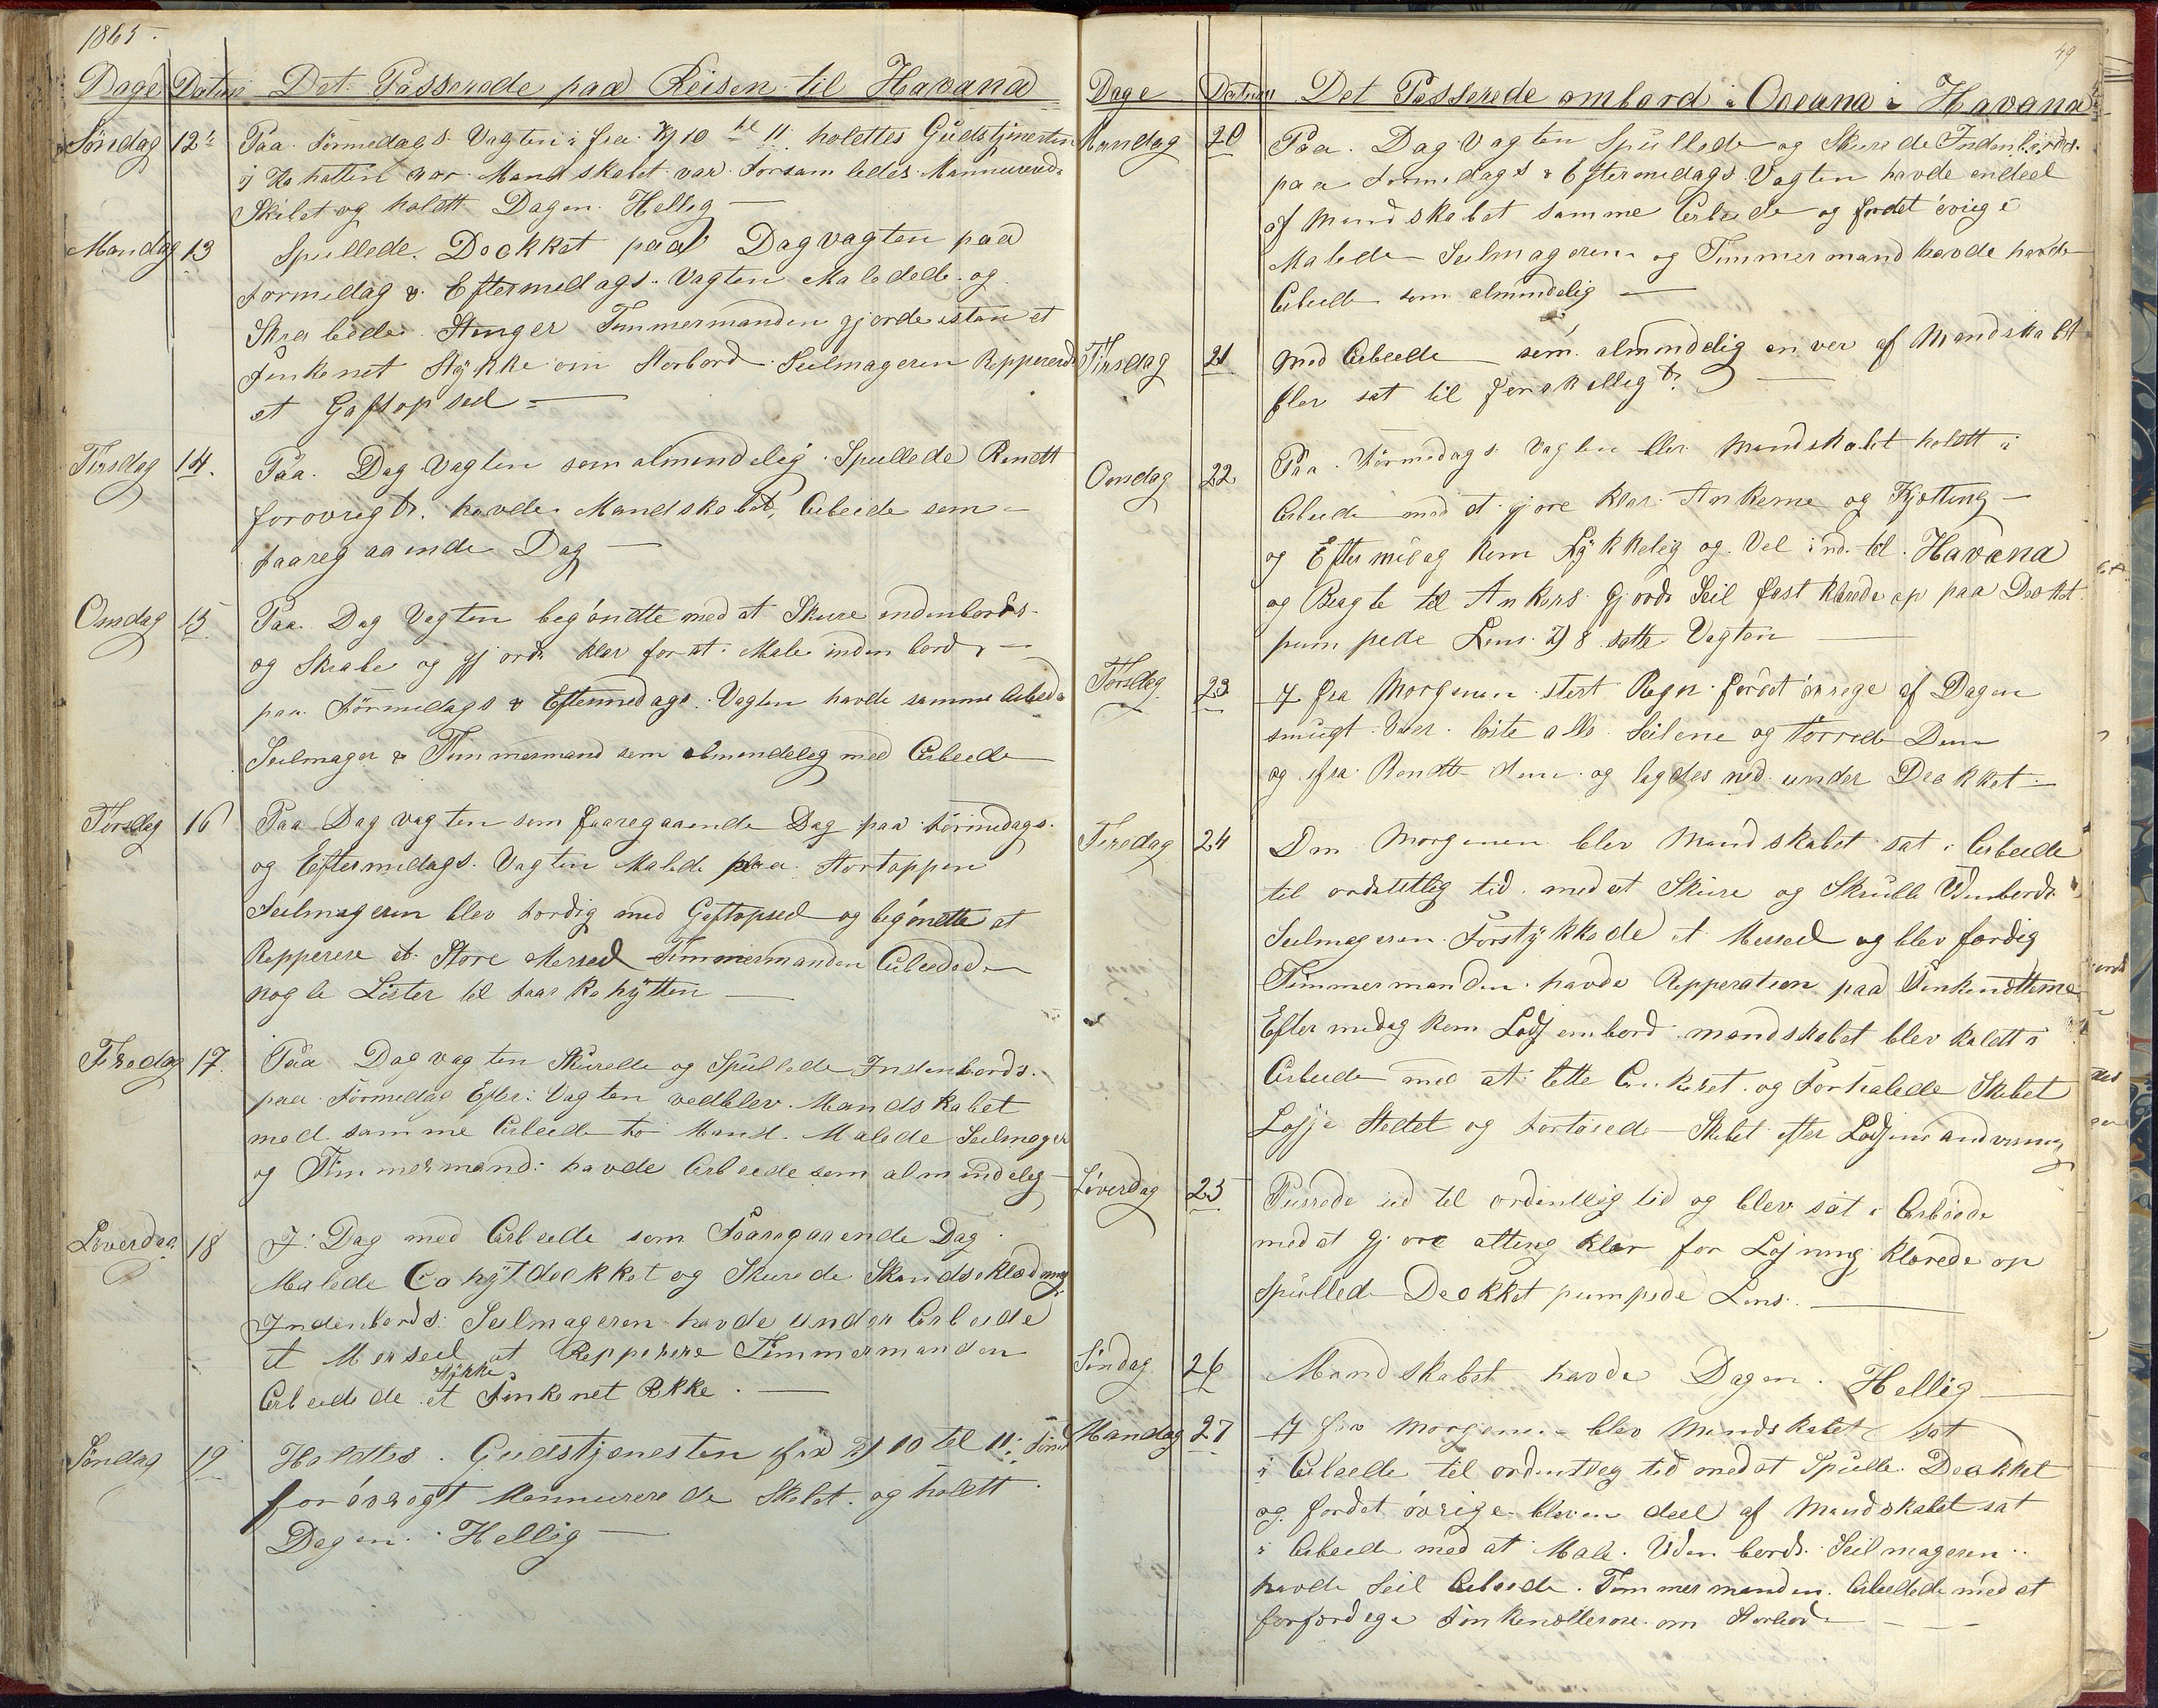 1865
Dage Datum Det Passerede paa Reisen til Havana
Søndag 12te Paa Formedags Vagten i fra Kl 10 til 11 holdtes Gudstjenesten
i Kahøtten vor Mandskabet var Forsamledes Mannurende
Skibet og holdtt Dagen Hellig
Mandag 13 Spullede Dækket paa Dagvagten paa
Formedag & Eftermedags Vagten Malede og
Skrabede Stenger Tømmermanden gjorde istan et
Finkenet Stykke om Storbord Seilmageren Reppererde
et Gaftopseil
Tirsdag 14. Paa Dag Vagten som almendelig Spullede Rendtt
forøvrigt havde Mandskabet Arbeide som
faaregaaende Dag
Onsdag 15 Paa Dag Vagten begøndte med at Skure indenbords
og Skrabe og gjorde klar for at Male indenbords
paa Formedags & Eftermedags Vagten havde samme Arbeide
Seilmager & Tømmermand som almendelig med Arbeide
Torsdag 16 Paa Dagvagten som faaregaaende Dag paa Formedags
og Eftermedags Vagten Malede paa Stortoppen
Seilmageren blev færdig med Gaftopseil og begøndte at
Repperere et Store Merseil Tømmermanden Arbeidede
nogle Lister til faar Kahytten
Fredag 17 Paa Dagvagten Skurede og Spullede Indenbords
paa Formedag Efter: Vagten vedblev Mandskabet
med samme Arbeide to Mand Malede Seilmager
og Tømmermand: havde Arbeide som almindelig
Løverdag 18 I Dag med Arbeide som Faaregaaende Dag
Malede Cahytdækket og Skurede Skandseklædning
Indenbords: Seilmageren havde under Arbeide
et Merseil at Repperere Tømmermanden
Stykke
Arbeidede et Finkenet Rekke
Søndag 19 Holdtes Gudstjenesten fra Kl 10 til 11
forøvrigt Mannurerede Skibet og holdtt
Dagen Hellig
49
Dage Datum Det Passerede ombord i Oceana i Havana
Mandag 20 Paa Dag Vagten Spullede og Skurede Indenbords
paa Formedags & Eftermedags Vagten havde endeel
af Mandskabet samme Arbeide og fordet øvrige
Malede Seilmageren og Tømmermand havde havde
Arbeide som almindelig
Tirsdag 21 Med Arbeide som almindelig en ver af Mandskabet
blev sat til forskelligt
Onsdag 22 Paa Formedags Vagten blev Mandskabet holdtt i
Arbeide med at gjøre klar Ankerne og Kjetting
og Eftermidag kom Lykkelig og Vel ind til Havana
og Bragte til Ankers Gjorde Seil fast klarede op paa Dækket
pumpede Lens Kl 8 satte Vagten
Torsdag 23 I fra Morgenen stert Regn fordet øvrige af Dagen
smugt Veer løste alle Seilene og tørrede Dem
og ifra Rendte dem og lagdes ned under Dækket
Fredag 24 Om Morgenen blev Mandskabet sat i Arbeide
til ordentlig tid med at Skure og Skrubbe Udenbords
Seilmageren Forstykkede et Merseil og blev færdig
Tømmermanden havde Repperation paa Finkenetterne
Eftermedag kom Lods ombord mandskabet blev kaldtt i
Arbeide med at lette Ankeret og Forhalede Skibet
Losje Stedet og fortøiede Skibet efter Lodsens andvisning
Løverdag 25 Purrede ud til ordentlig tid og blev sat i Arbeide
med at Gjøre alting klar for Losning klarede op
Spullede Dækket pumpede Lens
Søndag 26 Mandskabet havde Dagen Hellig
Mandag 27 I fra Morgenen blev Mandskabet sat
i Arbeide til ordentlig tid med at Spulle Dækket
og fordet øvrige bleven deel af Mandskabet sat
i Arbeide med at Male Uden bords Seilmageren
havde Seil Arbeide Tømmermanden Arbeidede med at
forfærdige Finkenetterne om Storbord